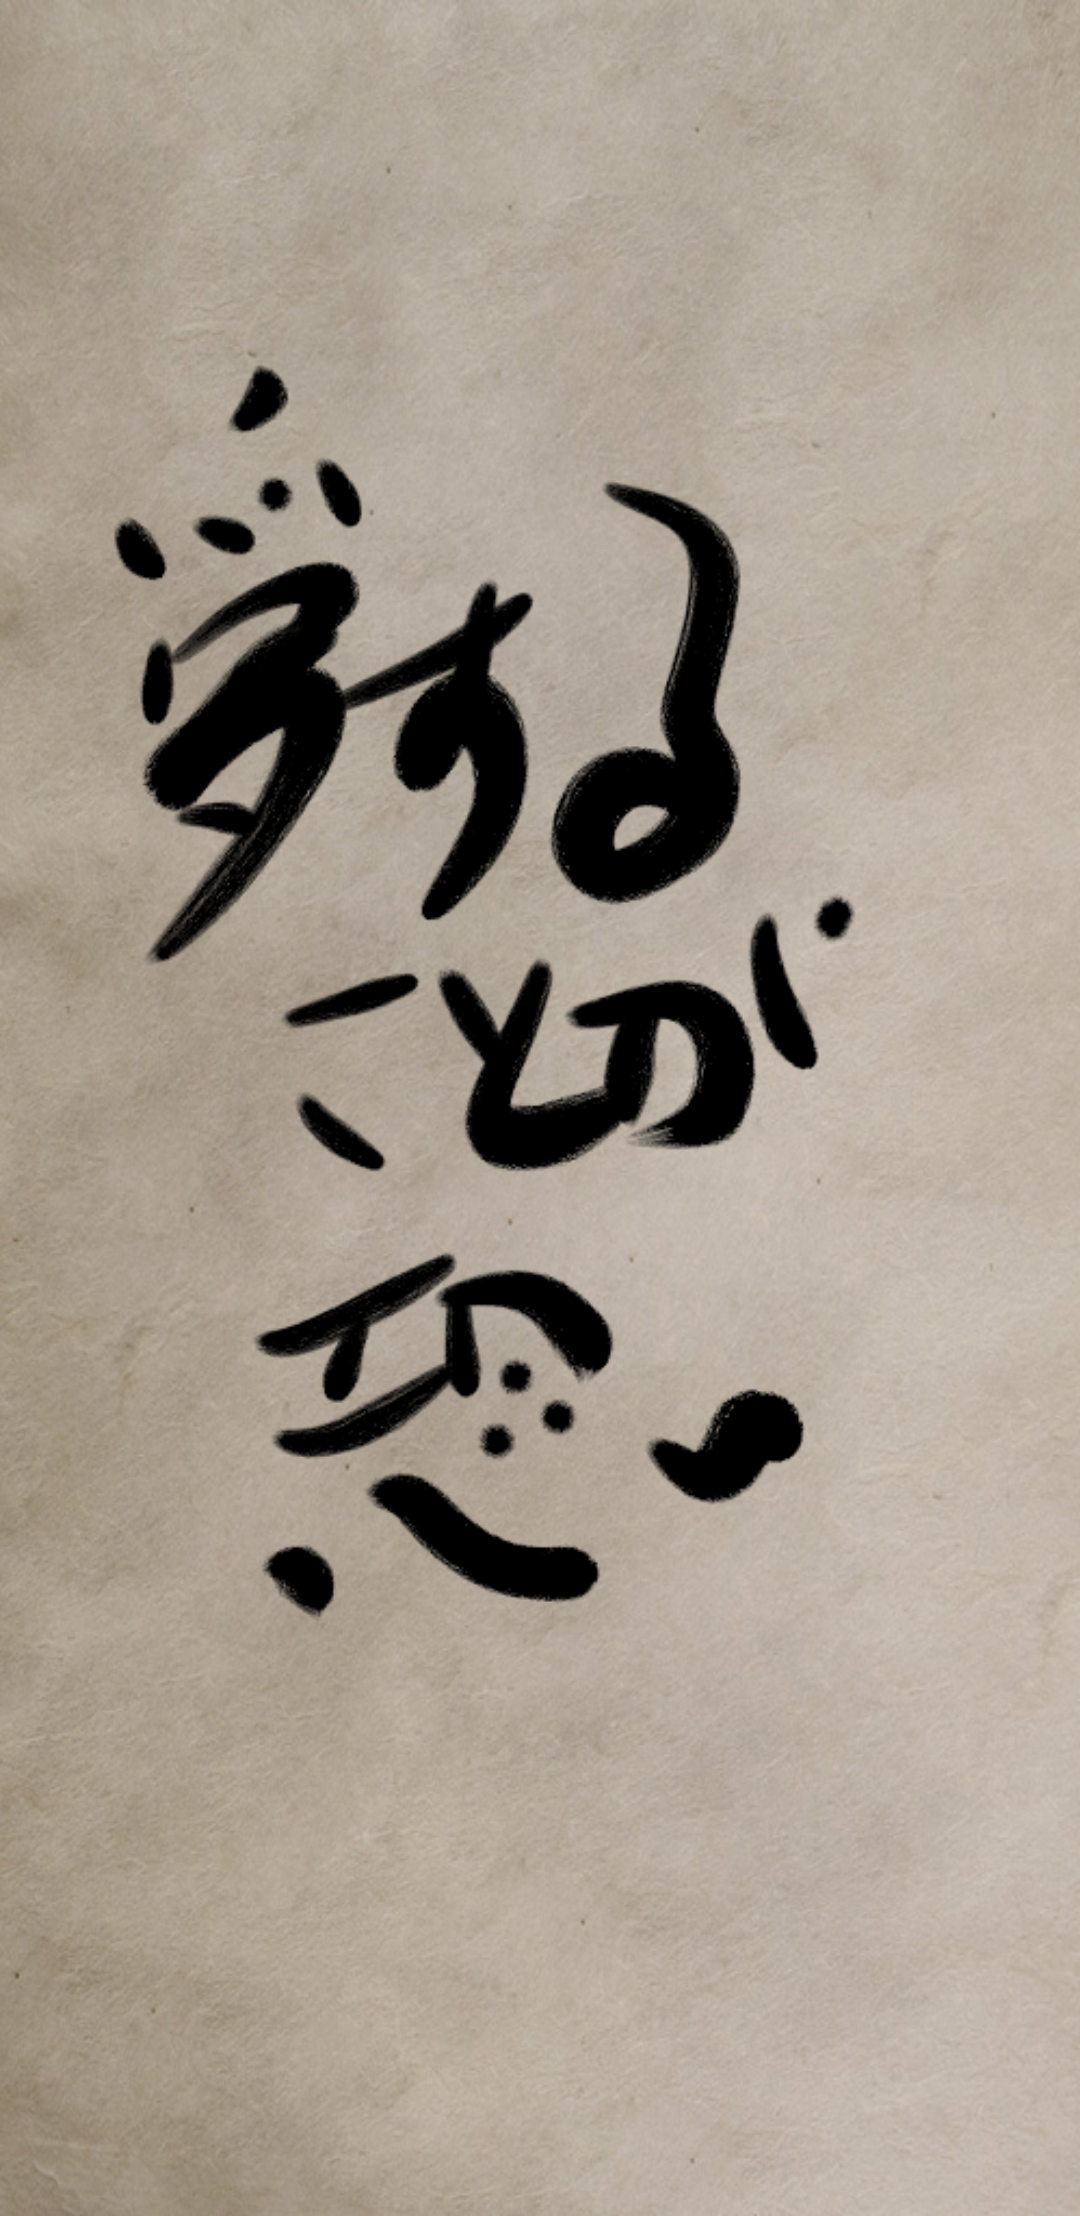 愛する
ことが
恐い